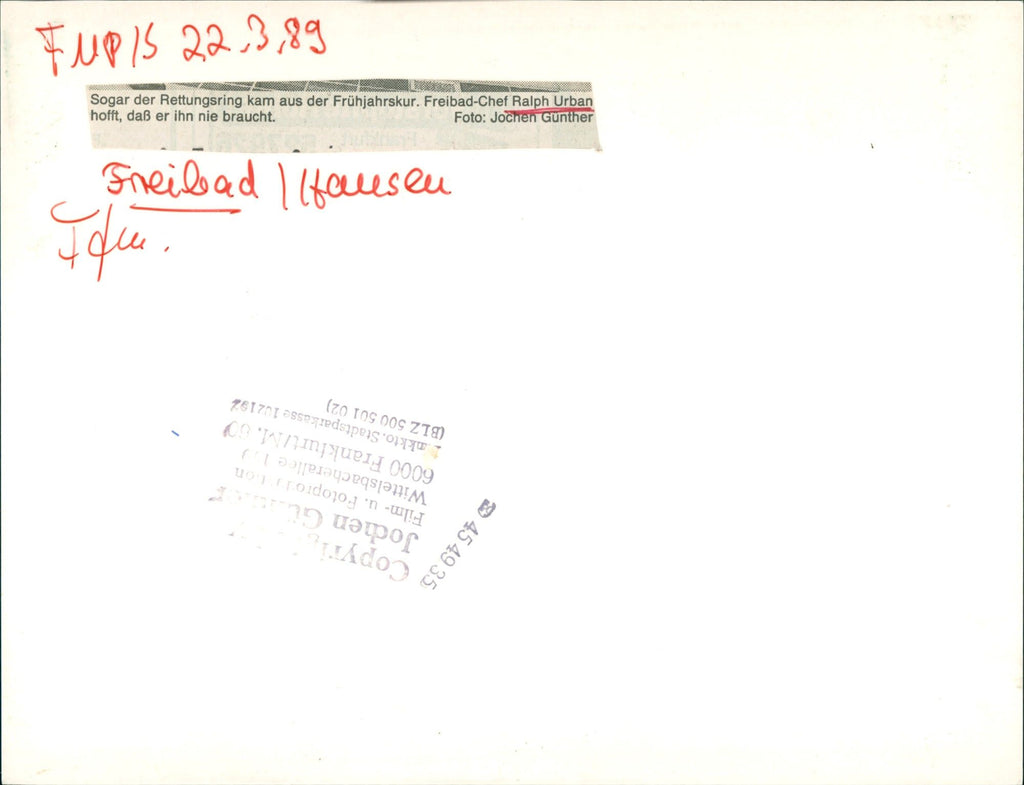 FNP/S 22.3.89
Sogar der Rettungsring kam aus der Frühjahrskur. Freibad-Chef Ralph Urban
hofft, daß er ihn nie braucht. Foto: Jochen Günther
Freibad / Hausen
Ffm.
Jochen
Film- u. Fotoproduktion
Wittelsbacherallee
6000 Frankfurt/M. 60
Stadtsparkasse
(BLZ 500 501 02)
☎ 45 49 35